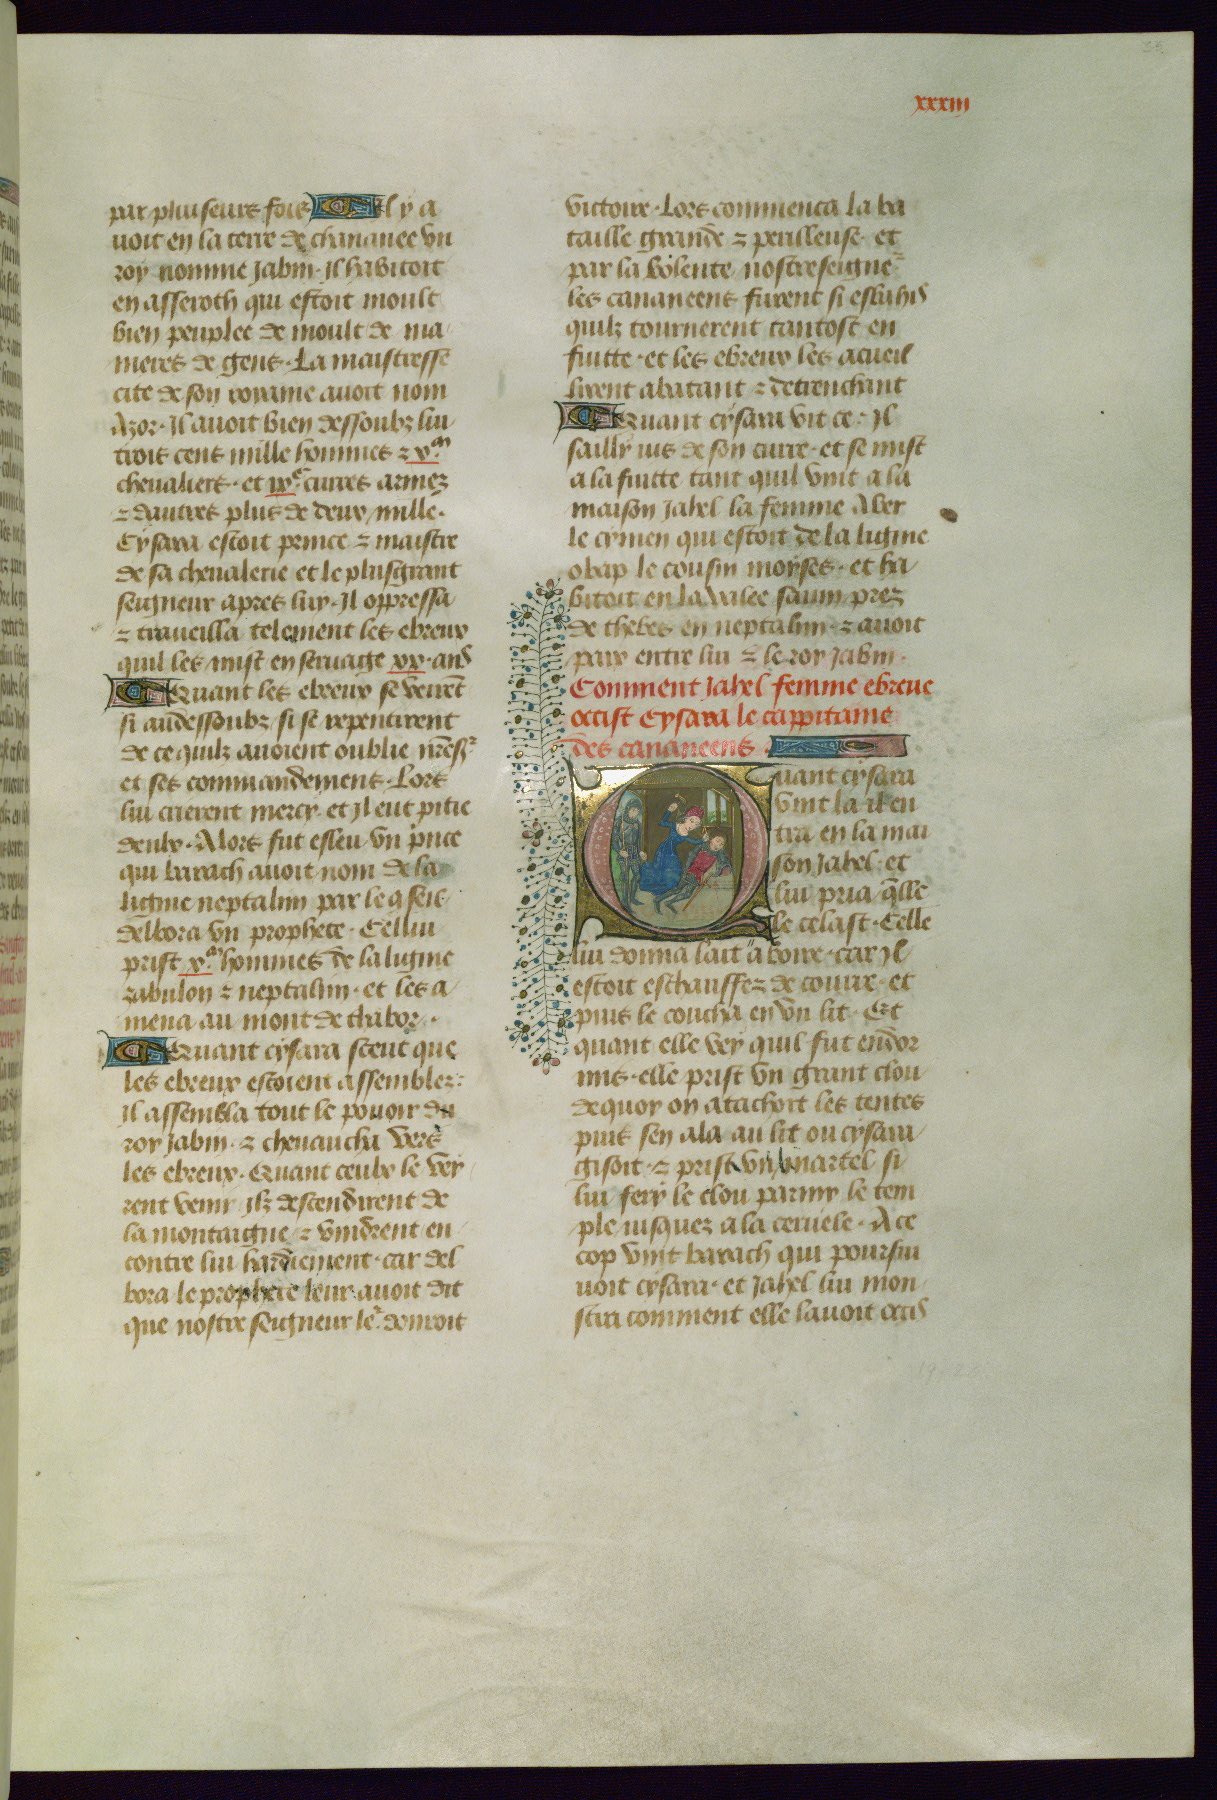 xxxiii
par pluiseurs fois Il y a
uoit en la terre de chananee vn
roy nomme Jabin. il habitoit
en asseroth qui estoit moult
bien peuplee de moult de ma
nieres de gens. La maistresse
cite de son royame auoit nom
Azor. Il auoit bien dessoubz lui
trois cens mille hommes z x.m
cheualiers. et ix.c curres armez
z dautres plus de deux mille.
Cysara estoit prince z maistre
de sa cheualerie et le plusgrant
seigneur apres luy. Il oppressa
z traueilla telement les ebreux
quil les mist en seruage xx. ans
Quant les ebreux se veirent
si audessoubz si se repentirent
de ce quilz auoient oublie nreser
et ses commandemens. Lors
lui crierent mercy. et Il eut pitie
deulx. Alors fut esleu vn pince
qui barach auoit nom de la
lignie neptalim par le cseil
delbora vn prophete. Cellui
prist x.m hommes de la lignie
zabulon z neptalim. et les a
mena au mont de thabor.
Quant cysara sceut que
les ebreux estoient assemblez:
il assembla tout le pouoir du
roy Jabin. z cheuaucha vers
les ebreux. Quant ceulx le vey
rent venir ilz descendirent de
la montaigne z vindrent en
contre lui hardiement. car del
bora le prophete leur auoit dit
que nostre seigneur le donroit
victoire. Lors commenca la ba
taille grande z perilleuse. et
par la volente nostreseigner
les cananeens furent si esbahis
quilz tournerent tantost en
fuitte. et les ebreux les acueil
lirent abatant z detrenchant
Quant cysara vit ce: Il
sailly ius de son curre. et se mist
a la fuitte tant quil vint a la
maison Jahel la femme Aber
le cynien qui estoit de la lignie
obap le cousin moyses. et ha
bitoit en la valee saim prez
de thebes en neptalim. z auoit
paix entre lui z le roy Jabin.
Comment Jahel femme ebreue
occist Cysara le cappitaine
des cananeens
Quant cysara
vint la il en
tra en la mai
son Jahel. et
lui pria qlle
le celast. Celle
lui donna lait a boire. car Il
estoit eschauffez de courre. et
puis le coucha en vn lit. Et
quant elle vey quil fut endor
mis. elle prist vn grant clou
dequoy on atachoit les tentes
puis sen ala au lit ou cysara
gisoit. z prist vn martel si
lui fery le clou parmy le tem
ple iusquez a la ceruele. A ce
cop vint barach qui poursui
uoit cysara. et Jahel lui mon
stra comment elle lauoit occis